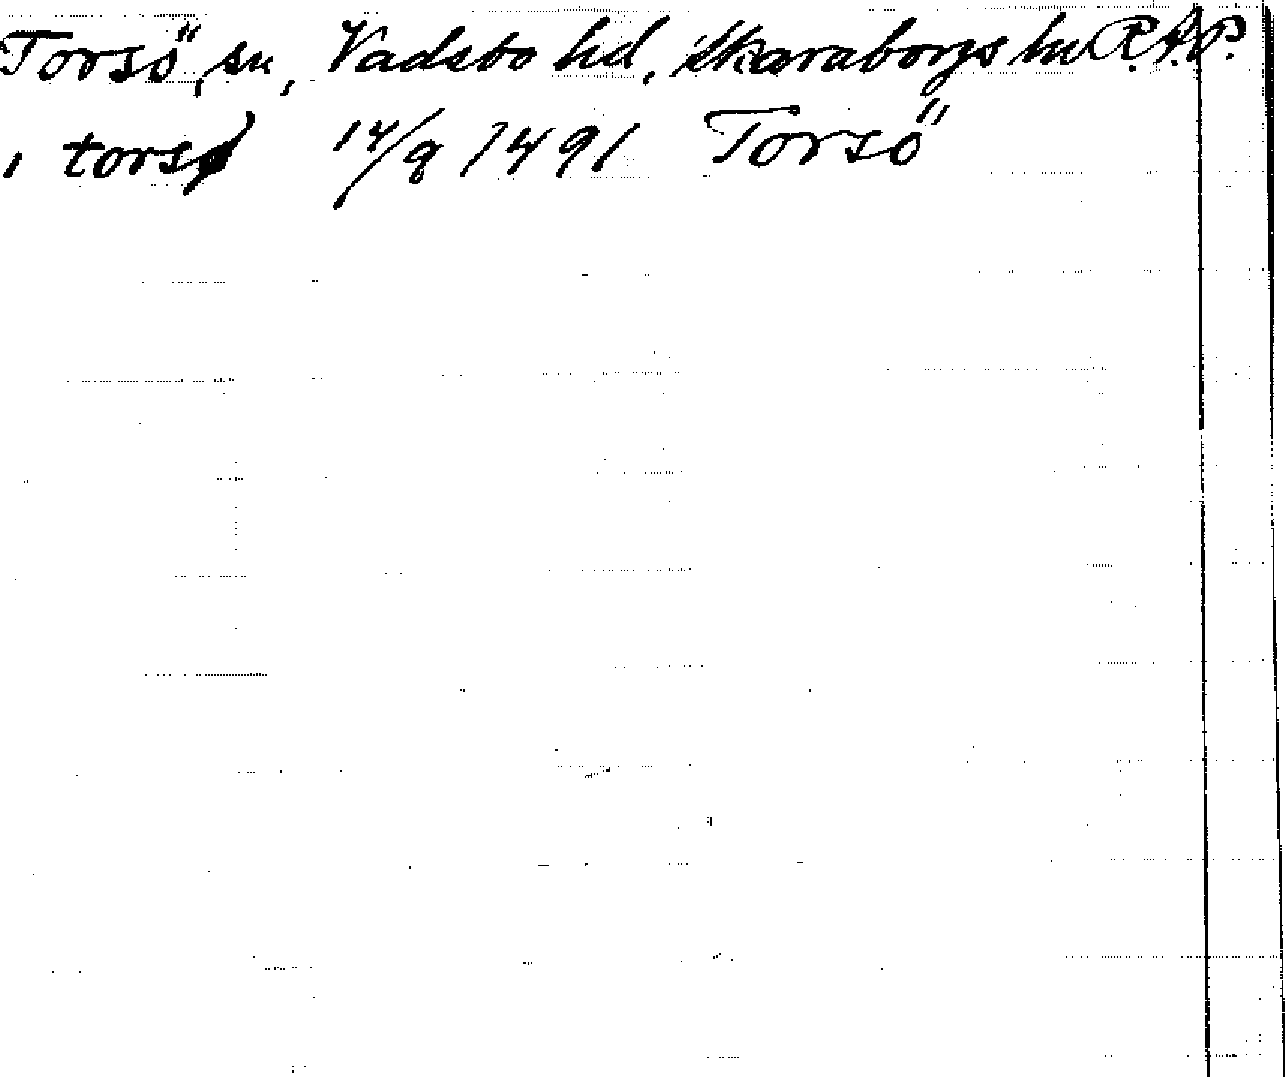 Torsö, sn, Vadsbo hd, Skaraborgs ln R.A.P.
i torsø 14/9 1491 Torsö